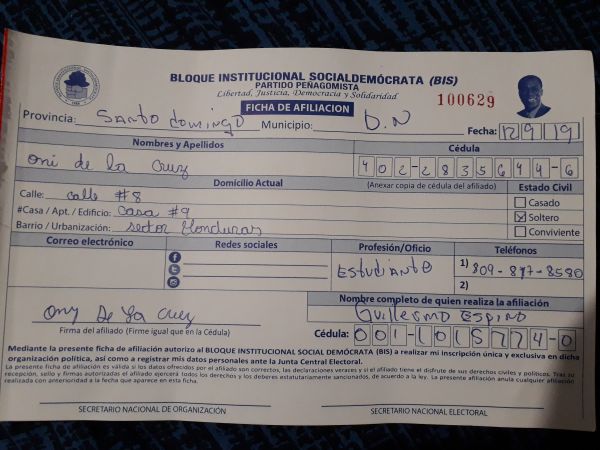 BLOQUE INSTITUCIONAL SOCIALDEMÓCRATA (BIS)
PARTIDO PEÑAGOMISTA
Libertad, Justicia, Democracia y Solidaridad
FICHA DE AFILIACION
100629
Provincia: Santo Domingo Municipio: D.N Fecha: 12/9/19
Nombres y Apellidos Cédula
Oni de la Cruz 402-2835644-6
Domicilio Actual (Anexar copia de cédula del afiliado) Estado Civil
Calle: calle #8 Casado
#Casa / Apt. / Edificio: Casa #9 Soltero
Barrio / Urbanización: sector Honduras Conviviente
Correo electrónico Redes sociales Profesión/Oficio Teléfonos
Estudiante 1) 809-877-8580
2)
Nombre completo de quien realiza la afiliación
Ony De La Cruz Guillermo Espino
Firma del afiliado (Firme igual que en la Cédula) Cédula: 001-1015774-0
Mediante la presente ficha de afiliación autorizo al BLOQUE INSTITUCIONAL SOCIAL DEMÓCRATA (BIS) a realizar mi inscripción única y exclusiva en dicha
organización política, así como a registrar mis datos personales ante la Junta Central Electoral.
La presente ficha de afiliación es válida si los datos ofrecidos por el afiliado son correctos, las declaraciones veraces y si el afiliado tiene el disfrute de sus derechos civiles y políticos. Tras su
recepción, sello y firmas autorizadas el afiliado ejercerá todos los derechos y los deberes estatutariamente sancionados, de acuerdo a la ley. La presente afiliación anula cualquier afiliación
realizada con anterioridad a la fecha que aparece en esta ficha.
SECRETARIO NACIONAL DE ORGANIZACIÓN SECRETARIO NACIONAL ELECTORAL